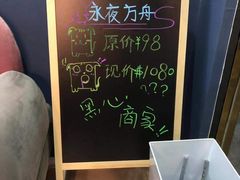 永夜方舟
原价¥98
现价¥1080
???
黑心
商家